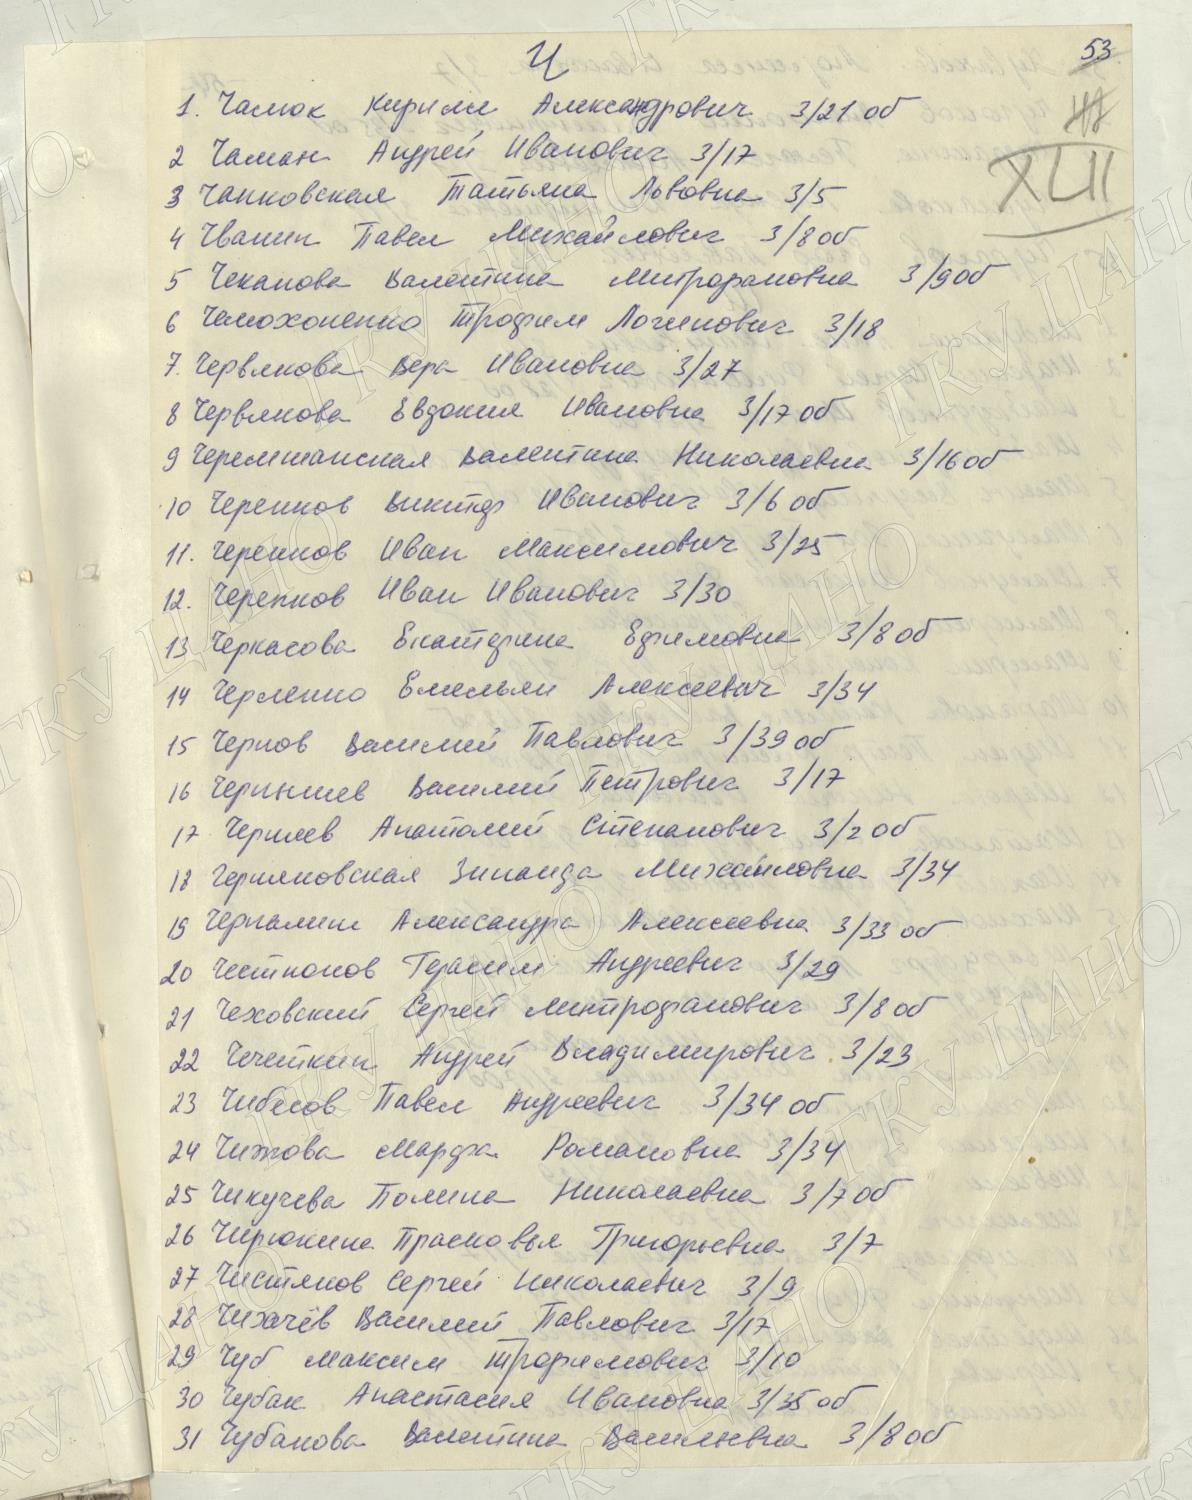 Ч
53
XLII
1. Чамок Кирилл Александрович 3/21 об
2 Чаман Андрей Иванович 3/17
3 Чапковская Татьяна Львовна 3/5
4 Чванин Павел Михайлович 3/8 об
5 Чеканова Валентина Митрофановна 3/9 об
6 Трофим Логинович 3/18
7. Червякова Вера Ивановна 3/27
8 Червякова Евдокия Ивановна 3/17 об
9 Черемшанская Валентина Николаевна 3/16 об
10 Черепков Виктор Иванович 3/6 об
11. Черепков Иван Максимович 3/25
12. Черепков Иван Иванович 3/30
13 Черкасова Екатерина Ефимовна 3/8 об
14 Черленко Емельян Алексеевич 3/34
15 Чернов Василий Павлович 3/39 об
16 Чернышев Василий Петрович 3/17
17 Анатолий Степанович 3/2 об
18 Черняковская Зинаида Михайловна 3/34
19 Александра Алексеевна 3/33 об
20 Честноков Герасим Андреевич 3/29
21 Чеховский Сергей Митрофанович 3/8 об
22 Чечеткин Андрей Владимирович 3/23
23 Чибесов Павел Андреевич 3/34 об
24 Чижова Марфа Романовна 3/34
25 Чикучева Полина Николаевна 3/7 об
26 Чирюкина Прасковья Григорьевна 3/7
27 Чистяков Сергей Николаевич 3/9
28 Чихачёв Василий Павлович 3/17
29 Чуб Максим Трофимович 3/10
30 Чубак Анастасия Ивановна 3/35 об
31 Чубакова Валентина Васильевна 3/8 об
ГКУ ЦАНО